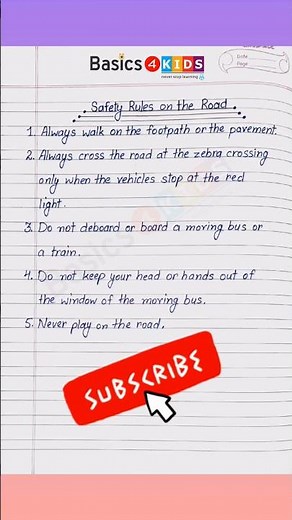 Basics 4 KIDS
never stop learning
Date
Page
Safety Rules on the Road
1. Always walk on the footpath or the pavement.
2. Always cross the road at the zebra crossing
only when the vehicles stop at the red
light.
3. Do not deboard or board a moving bus or
a train.
4. Do not keep your head or hands out of
the window of the moving bus.
5. Never play on the road.
SUBSCRIBE